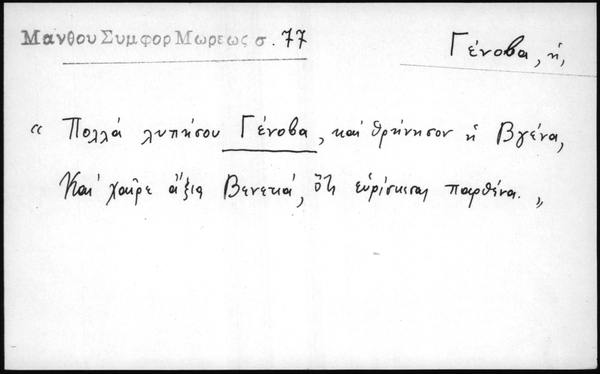 Μανθου Συμφορ Μωρεως σ. 77
Γένοβα, ἡ,
“ Πολλά λυπήσου Γένοβα, καί θρήνησον ἡ Βγένα,
Καί χαῖρε ἄξια Βενετιά, ὅτι εὑρίσκεσαι παρθένα. „